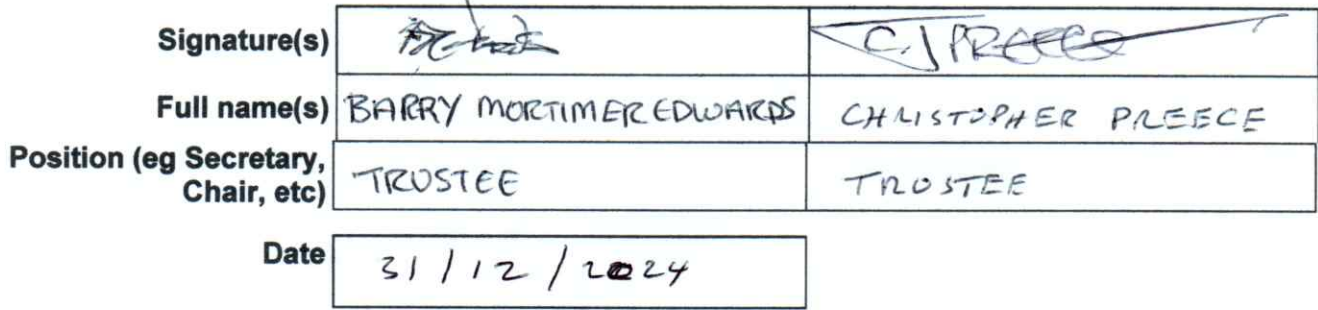 Signature(s) C.J PREECE
Full name(s) BARRY MORTIMER EDWARDS CHRISTOPHER PREECE
Position (eg Secretary,
Chair, etc) TRUSTEE TRUSTEE
Date 31/12/2024